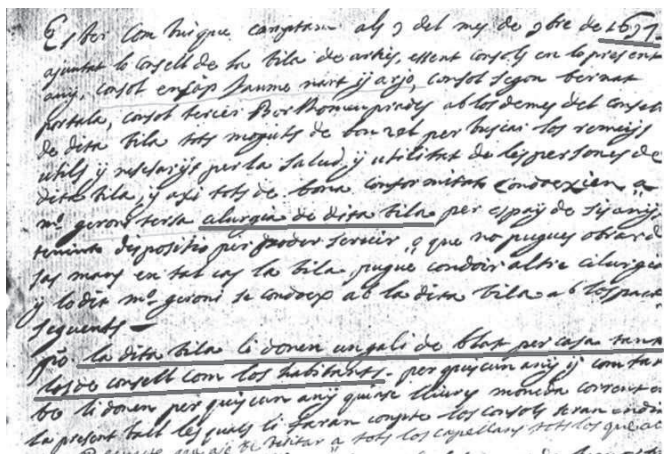 Es ver com vuy que comptam als 9 del mes de 9bre de 1697
ajuntat lo consell de la bila de artes, essent consols en lo present
any, consol en cap Jaume nart y arjo, consol segon bernat
portula, consol tercer Borthomeu prades ab los demes del consell
de dita bila tots moguts de bon zel per buscar los remeys
utils y nesesarys per la salud y utilitat de les persones de
dita bila, y axi tots de bona conformitat condoexien a
mº geroni tersa cilurgia de dita bila per espay de sis anys
tenint disposisio per poder servir o que no pugues obrar de
sas mans en tal cas la bila pugue condoir altre cilurgia
y lo dit mº geroni se condoex ab la dita bila ab los pactes
seguents
pº la dita bila li donen un gali de blat per casa tant
los de consell com los habitants. per quiscun any y com tam
be li donen per quiscun any quinse lliures moneda corrent
la present vall les quals li faran compte los consols seran
de visitar a tots los capellans tots los que al